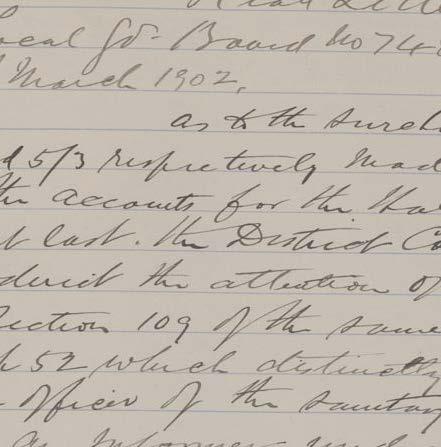 Read Le
ocal Gd- Board No 74
March 1902,
as to the surch
d 5/3 respectively mad
the accounts for the Ha
t last. the District Co
direct the attention of
ection 109 of the same
52 which distinctly
officer of the sanitary
an Informer